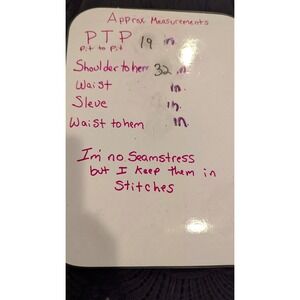 Approx Measurements
PTP 19 in.
Pit to Pit
Shoulder to hem 32 in.
Waist in.
Sleve in.
Waist to hem in.
I'm no Seamstress
but I keep them in
Stitches